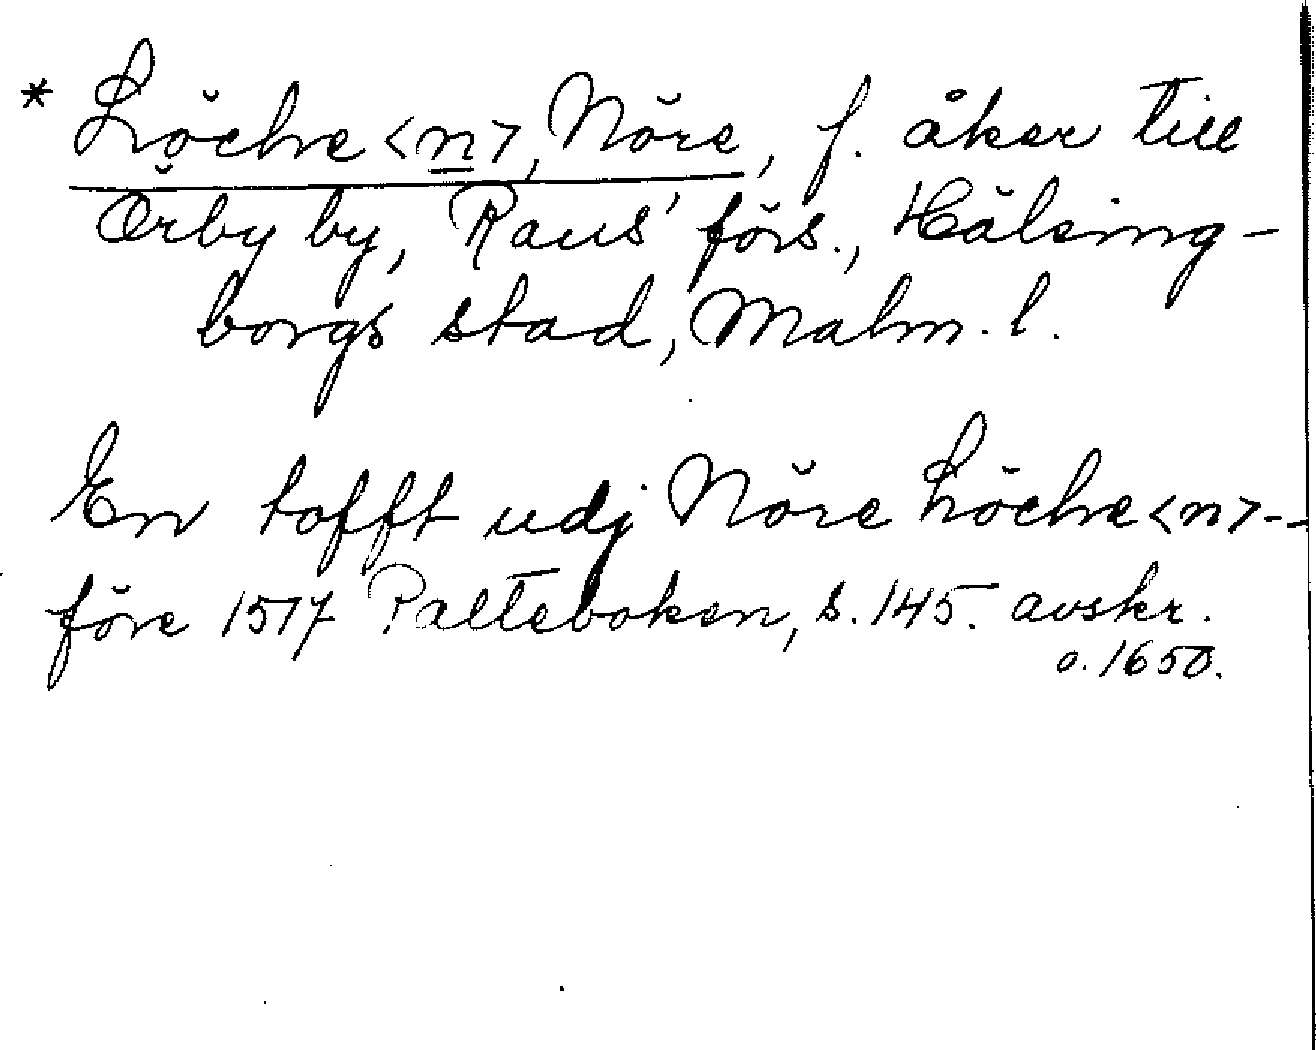 * Löche<n>, Nöre, f. åker till
Örby by, Raus' förs., Hälsing-
borgs stad, Malm. l.
En tofft udj Nöre Löche<n>--
före 1517 Palteboken, s. 145. avskr.
o. 1650.